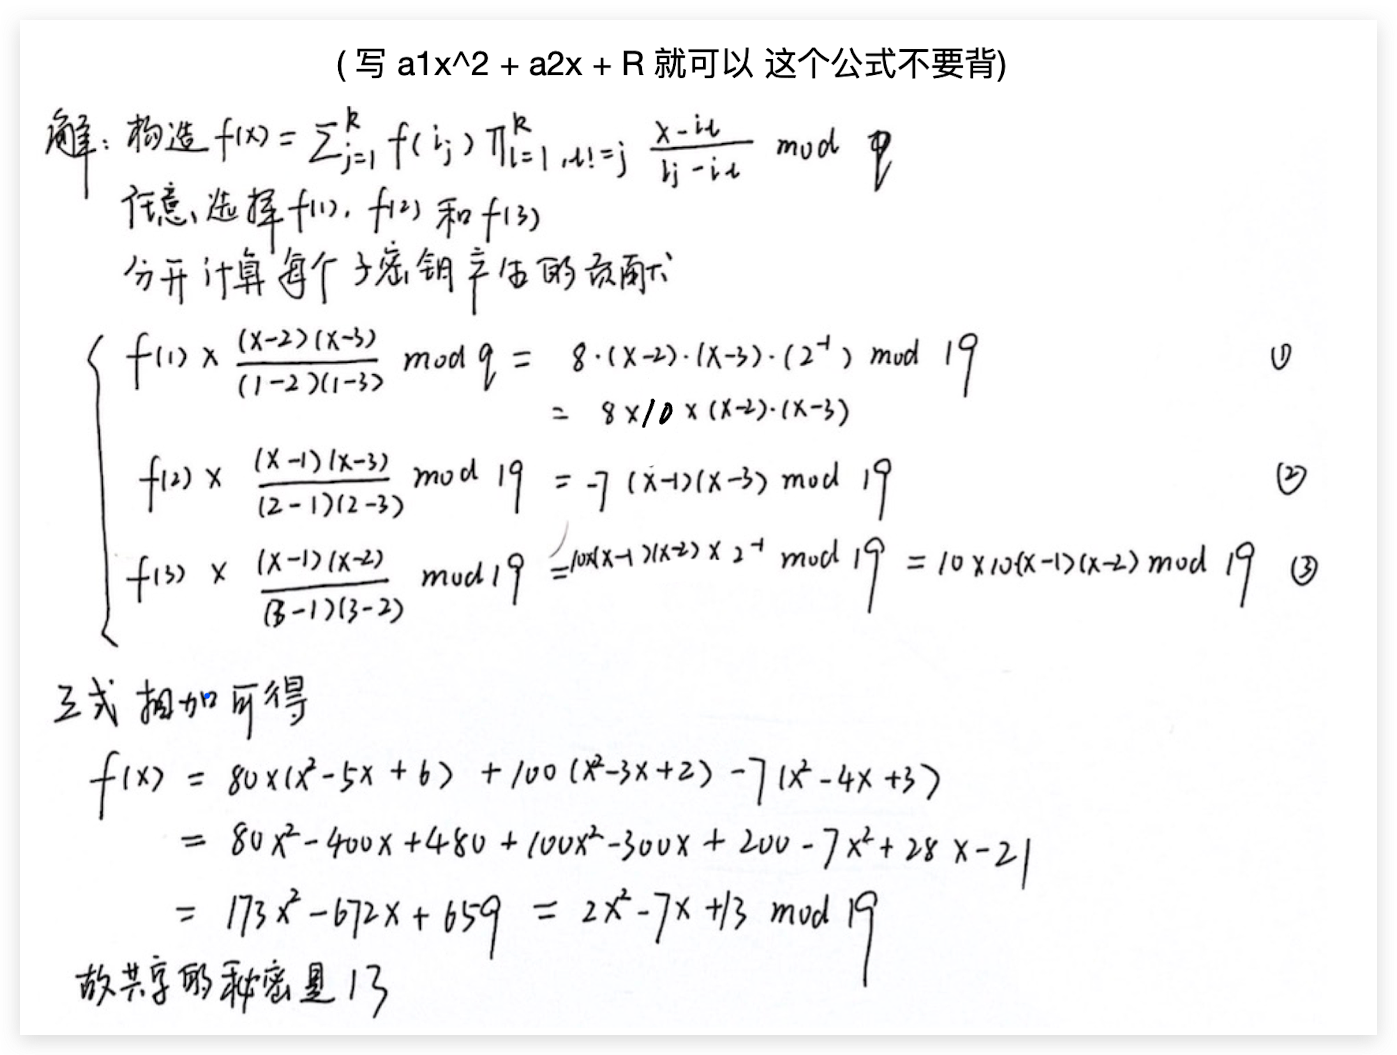 ( 写 a1x^2 + a2x + R 就可以 这个公式不要背)
解: 构造 f(x) = ∑_{j=1}^{k} f(i_j) ∏_{l=1, l!=j}^{k} \frac{x-i_l}{i_j-i_l} mod q
任意选择 f(1), f(2) 和 f(3)
分开计算每个子密钥产生的
f(1) × \frac{(x-2)(x-3)}{(1-2)(1-3)} mod q = 8·(x-2)·(x-3)·(2^{-1}) mod 19 ①
= 8×10×(x-2)·(x-3)
f(2) × \frac{(x-1)(x-3)}{(2-1)(2-3)} mod 19 = -7 (x-1)(x-3) mod 19 ②
f(3) × \frac{(x-1)(x-2)}{(3-1)(3-2)} mod 19 = 10×(x-1)(x-2) × 2^{-1} mod 19 = 10×10(x-1)(x-2) mod 19 ③
三式相加可得
f(x) = 80×(x²-5x+6) + 100(x²-3x+2) - 7(x²-4x+3)
= 80x²-400x+480+100x²-300x+200-7x²+28x-21
= 173x²-672x+659 = 2x²-7x+13 mod 19
故共享的秘密是13